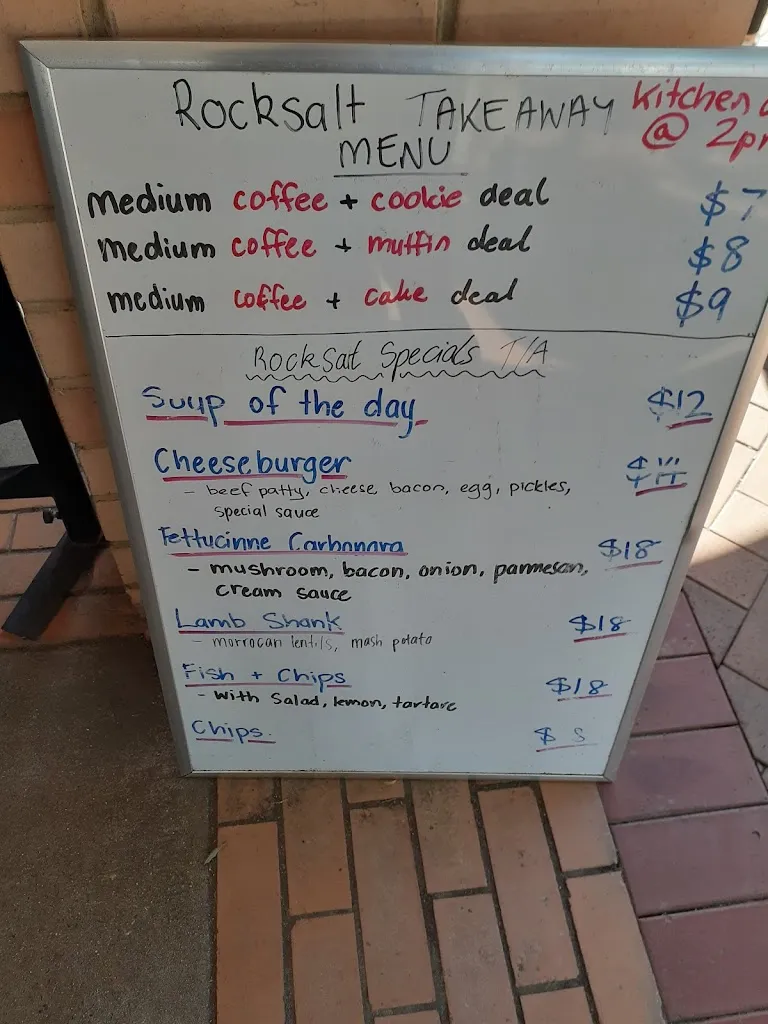 Rocksalt TAKEAWAY Kitchen
MENU @ 2p
medium coffee + cookie deal $7
medium coffee + muffin deal $8
medium coffee + cake deal $9
Rocksalt Specials T/A
Soup of the day $12
Cheeseburger
- beef patty, cheese, bacon, egg, pickles,
special sauce
Fettucinne Carbonara $18
- mushroom, bacon, onion, parmesan,
cream sauce
Lamb Shank $18
- morrocan lentils, mash potato
Fish + Chips $18
- with salad, lemon, tartare
Chips.